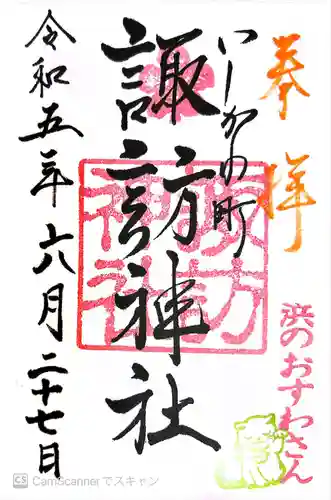 奉拝
いしかわ町
諏訪神社
令和五年六月二十七日
諏訪神社
浜のおすわさん
CS CamScannerでスキャン